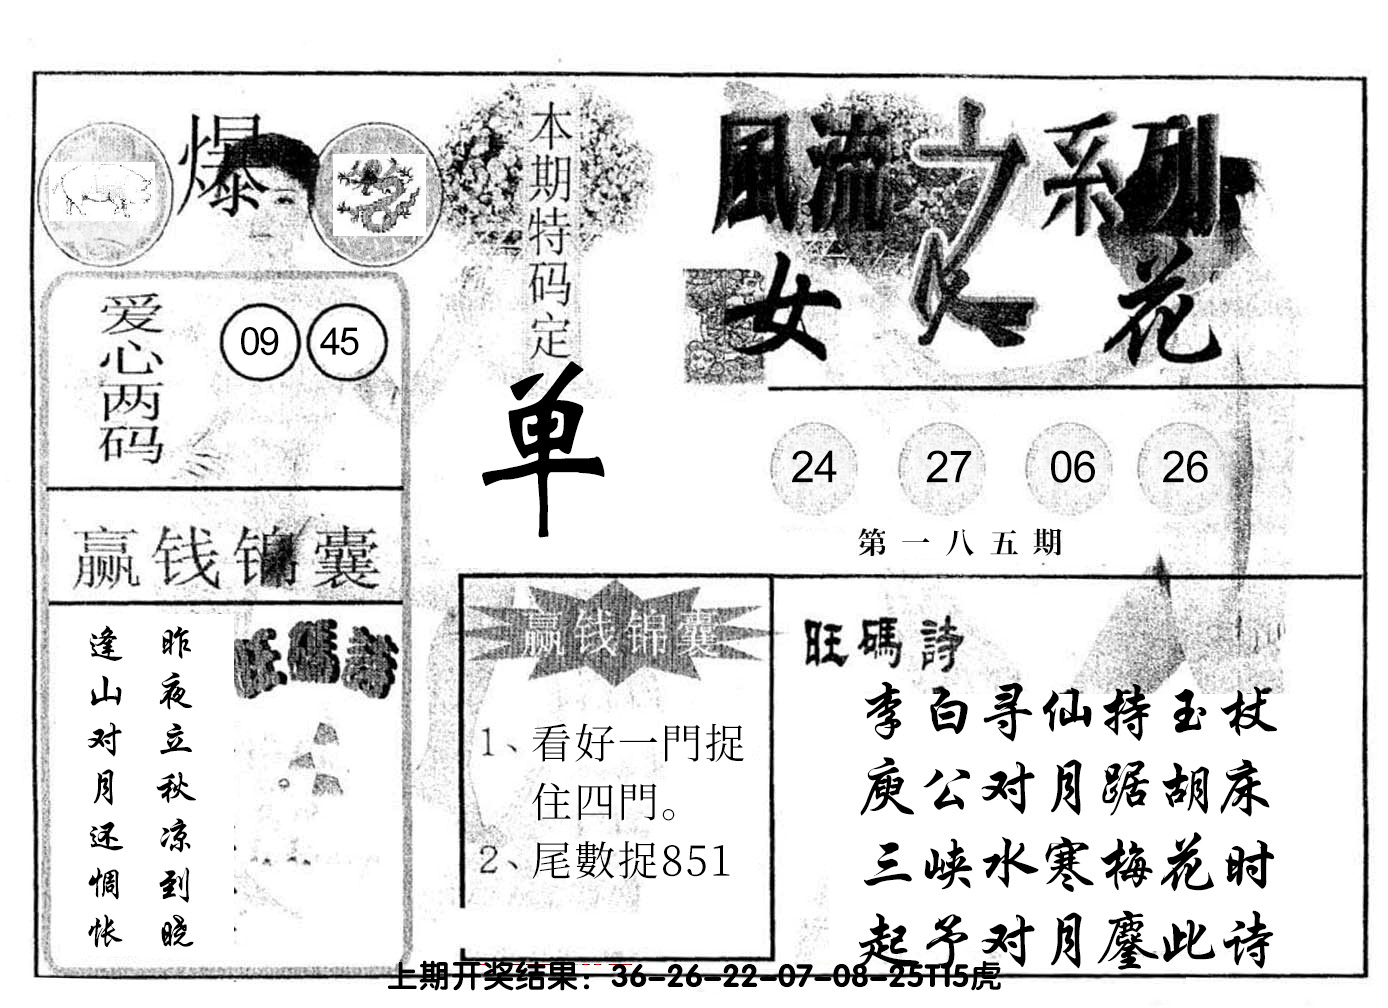 爆
本期特码定
单
風流之系列
女人花
爱心两码
09 45
24 27 06 26
第一八五期
赢钱锦囊
昨夜立秋凉到晓
逢山对月还惆怅
旺碼詩
赢钱锦囊
1、看好一門捉
住四門。
2、尾數捉851
旺碼詩
李白寻仙持玉杖
庾公对月踞胡床
三峡水寒梅花时
起予对月鏖此诗
上期开奖结果：36-26-22-07-08-25T15虎